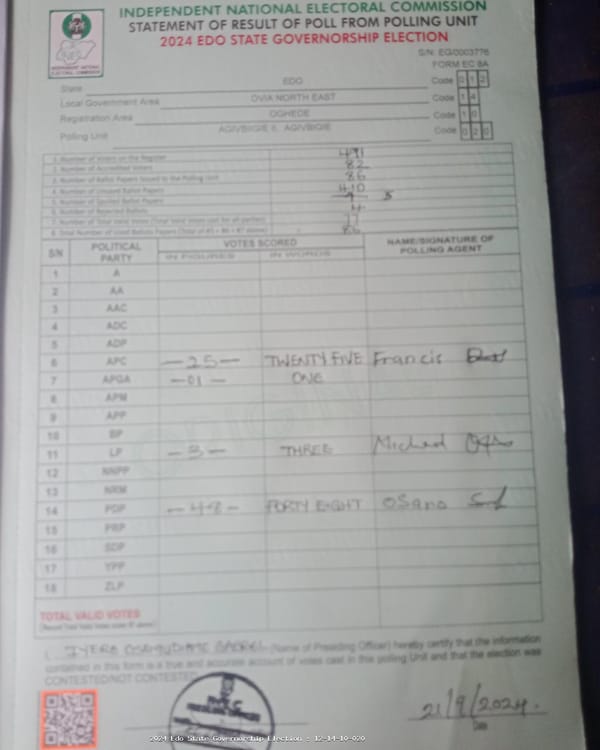 INDEPENDENT NATIONAL ELECTORAL COMMISSION
STATEMENT OF RESULT OF POLL FROM POLLING UNIT
2024 EDO STATE GOVERNORSHIP ELECTION
S/N: EG/0003776
FORM EC 8A
State EDO Code 0 1 2
Local Government Area OVIA NORTH EAST Code 1 4
Registration Area OGHEDE Code 1 0
Polling Unit AGIVBIGIE II, AGIVBIGIE Code 0 2 0
1. Number of Voters on the Register 491
2. Number of Accredited Voters 82
3. Number of Ballot Papers Issued to the Polling Unit 86
4. Number of Unused Ballot Papers 410
5. Number of Spoiled Ballot Papers 5
6. Number of Rejected Ballots 4
7. Number of Total Valid Votes (Total valid votes cast for all parties) 77
8. Total Number of Used Ballot Papers (Total of #5 + #6 + #7 above) 86
SN POLITICAL PARTY VOTES SCORED NAME/SIGNATURE OF POLLING AGENT
IN FIGURES IN WORDS
1 A
2 AA
3 AAC
4 ADC
5 ADP
6 APC -25- TWENTY FIVE Francis
7 APGA -01- ONE
8 APM
9 APP
10 BP
11 LP -3- THREE Michael
12 NNPP
13 NRM
14 PDP -48- FORTY EIGHT OSARO
15 PRP
16 SDP
17 YPP
18 ZLP
TOTAL VALID VOTES
I, IYERE OSAMUDIAME GABREL (Name of Presiding Officer) hereby certify that the information
contained in this form is a true and accurate account of votes cast in this polling Unit and that the election was
CONTESTED/NOT CONTESTED
21/9/2024.
Date
2024 Edo State Governorship Election : 12-14-10-020